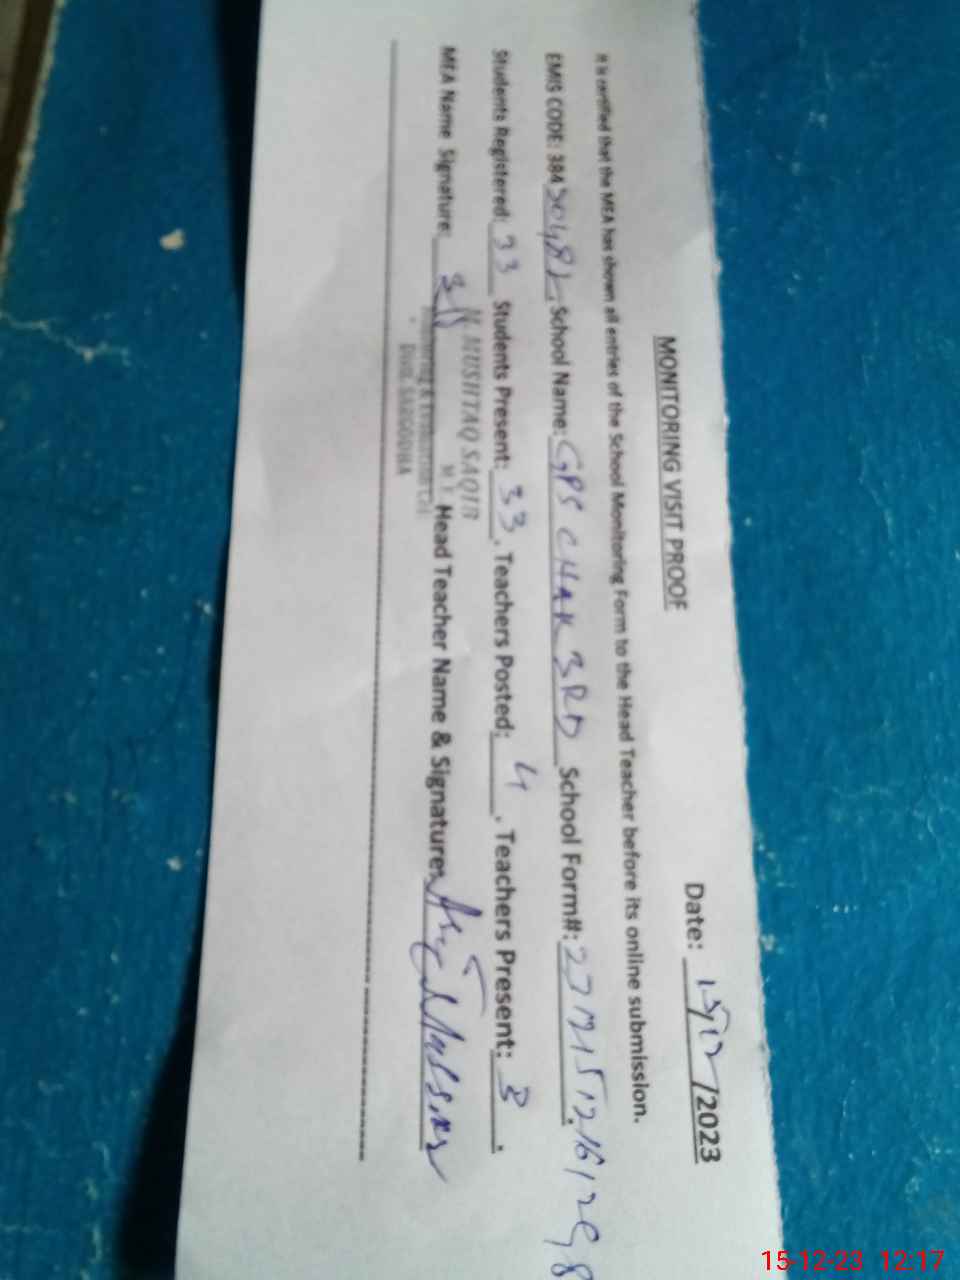 MONITORING VISIT PROOF
Date: 15/12/2023
It is certified that the MEA has shown all entries of the School Monitoring Form to the Head Teacher before its online submission.
EMIS CODE: 384 School Name: GPS CHAK 3RD School Form#:
Students Registered: 33 Students Present: 33. Teachers Posted: 4. Teachers Present: 3.
MEA Name Signature: Head Teacher Name & Signature:
MUSHTAQ SAQIB
Monitoring & Evaluation
Distt. SARGODHA
15-12-23 12:17